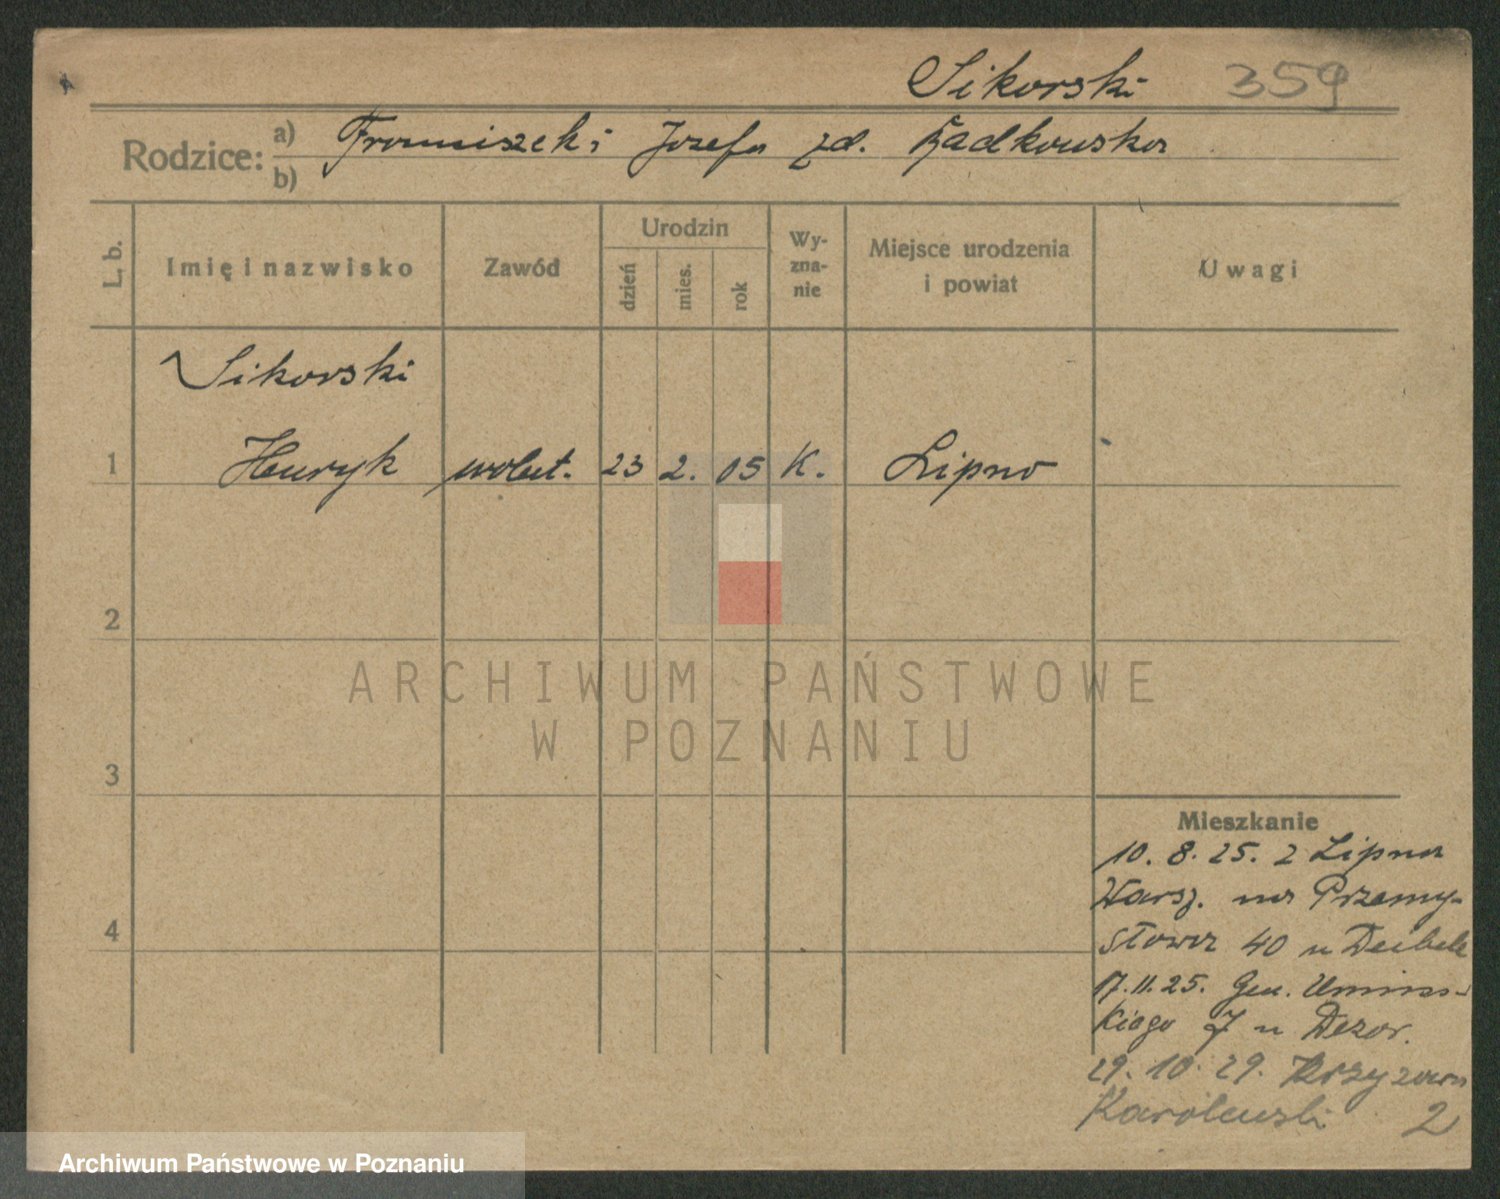 Sikorski 359
Rodzice: a) Franciszek i Józefa zd. Żadkowska
b)
L. b. Imię i nazwisko Zawód Urodzin dzień mies. rok Wy-zna-nie Miejsce urodzenia i powiat Uwagi
Sikorski
1 Henryk robot. 23 2. 05 K. Lipno
2
3
4
ARCHIWUM PAŃSTWOWE
W POZNANIU
Mieszkanie
10. 8. 25. z Lipna
Warsz. na Przemy-
słowa 40 u
17. 11. 25. Gen. Umińs-
kiego 7 u
29. 10. 29. Krzyżowa
Karolewski 2
Archiwum Państwowe w Poznaniu